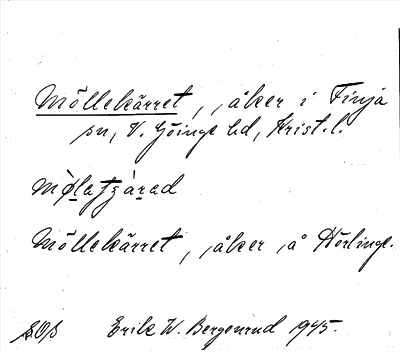 Möllekärret, åker i Finja
sn, V. Göinge hd, Krist. l.
Möllekärret, åker å Hörlinge.
Erik W. Bergenrud 1945.